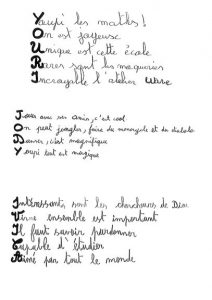 Youpi les maths !
On est joyeuse
Unique est cette école
Rares sont les moqueries
Incroyable l'atelier
Jouer avec ses amis, c'est cool
On peut jongler, faire du monocycle et du diabolo
Danser, c'est magnifique
Youpi tout est magique
Intéressants sont les chercheurs de Dieu
Vivre ensemble est important
Il faut savoir pardonner
Capable d'étudier
Aimé par tout le monde